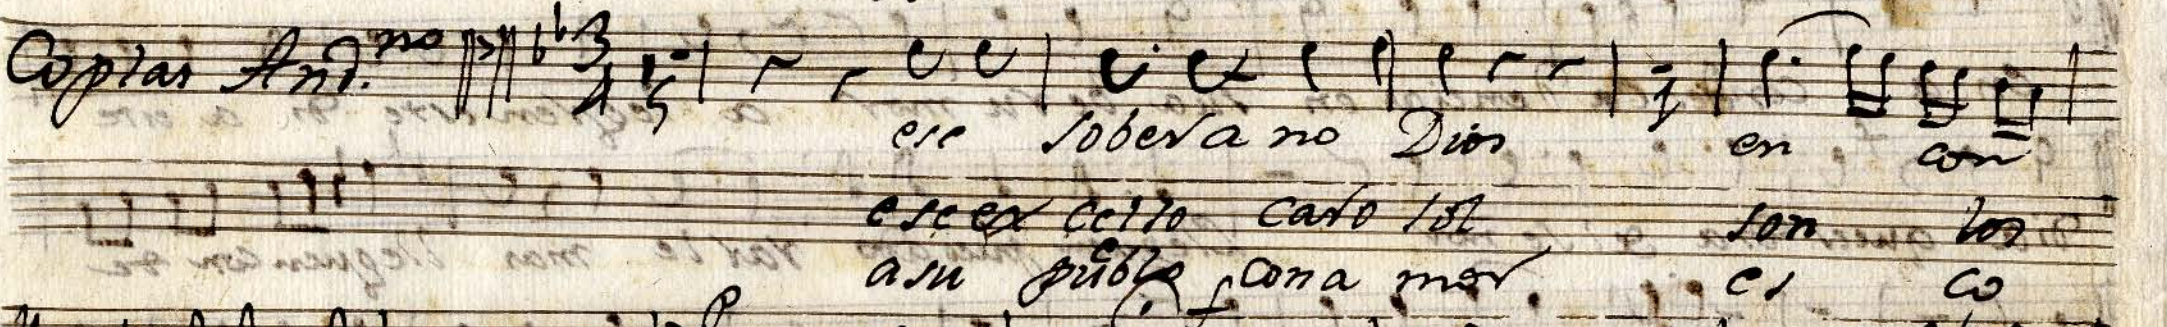 Coplas And.no 3/4 5
ese soberano Dios en con
ese ex celso caro sol son los
a su pueblo con a mor es co
P f